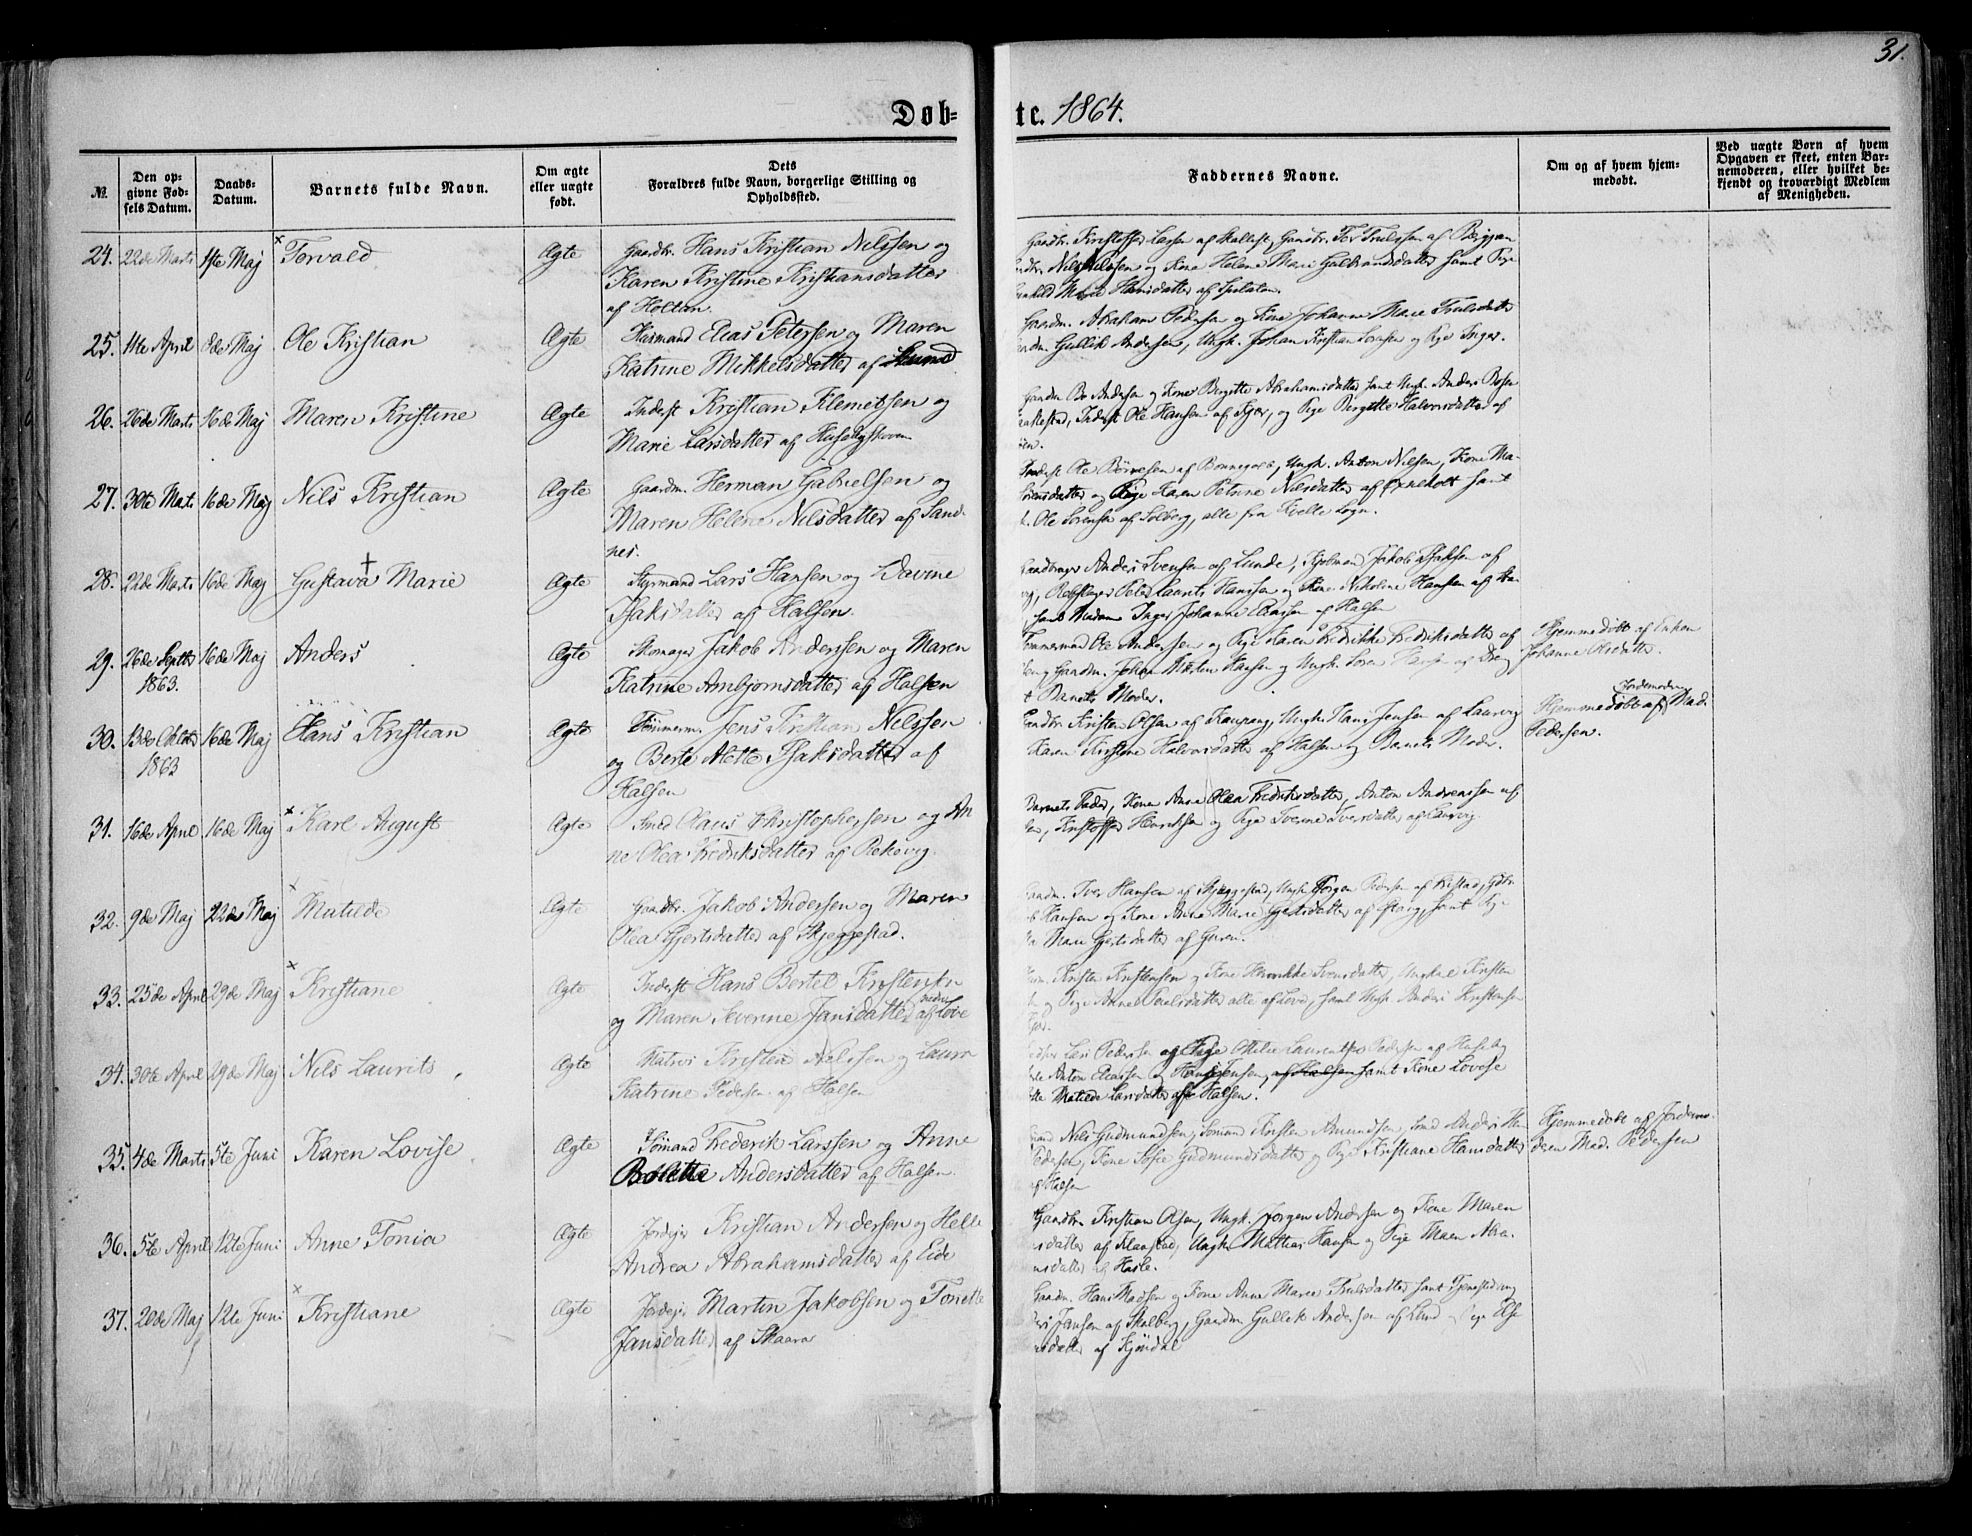 31.
Døb-
te. 1864.
№.
Den op-
givne Fød-
sels Datum.
Daabs-
Datum.
Barnets fulde Navn.
Om ægte
eller uægte
født.
Dets
Forældres fulde Navn, borgerlige Stilling og
Opholdssted.
Faddernes Navne.
Om og af hvem hjem-
medøbt.
Ved uægte Børn af hvem
Opgaven er skeet, enten Bar-
nemoderen, eller hvilket be-
kjendt og troværdigt Medlem
af Menigheden.
24. 22de Marts 1ste Maj × Torvald Ægte Gaardbr. Hans Kristian Nilssen og
Karen Kristine Kristiansdatter
af Holtan.
Gaardbr. Kristoffer Larsen af
Nils Nilssen og Kone Helene Marie Gulbrandsdatter samt Pige
Marie Hansdatter af
25. 11te April 8de Maj Ole Kristian Ægte Husmand Elias Petersen og Maren
Katrine Mikkelsdatter af Lund
Gaardm. Abraham Pedersen og Kone Johanne Marie Trulsdatter
Gullik Andersen, Ungk. Johan Kristian Sorensen og Pige Inger.
26. 26de Marts 16de Maj Maren Kristine Ægte Inderst Kristian Klemetsen og
Marie Larsdatter af Husebyskoven
Gaardm. Bo Andersen og Kone Birgitte Abrahamsdatter samt Ungk. Anders Bosen
Inderst Ole Hansen af og Pige Birgitte Halvorsdatter af
27. 30te Marts 16de Maj Nils Kristian Ægte Gaardm. Herman Gabrielsen og
Maren Helene Nilsdatter af Sand-
nes.
Inderst Ole af Ungk. Anton Nilsen, Kone Ma-
Sorensdatter og Pige Karen Petrine Nilsdatter af samt
Ole Sorensen af Solberg, alle fra Kvelle Sogn.
28. 22de Marts 16de Maj Gustava Marie Ægte Styrmand Lars Hansen og Davine
Isaksdatter af Halsen.
Gaardbruger Anders Svensen af Lunde, Jakob Isaksen af
Peter Laurits Hanssen og Kone Nikoline Hansen af
samt Madam Inger Johanne Eliassen af Halsen
29. 26de Septbr 16de Maj Anders Ægte Skomager Jakob Anderssen og Maren
1863.
Katrine Ambjornsdatter af Halsen
Tommermand Ole Andersen og Pige Karen Fredrikke Fredriksdatter af
Gaardm. Johan Martin Hansen og Ungk. Soren
Barnets Moder.
Hjemmedøbt af Enken
Johanne Olsdatter.
30. 13de Oktbr 16de Maj Hans Kristian Ægte Tommerm. Jens Kristian Nilssen
1863
og Berte Alette Isaksdatter af
Halsen
Gaardbr. Kristen Olsen af Kaupang, Ungk. Hans Jensen af Laurvig
Karen Kirstine Halvorsdatter af Halsen og Barnets Moder.
Hjemmedøbt af Jordemoder Mad.
Pedersen.
31. 16de April 16de Maj × Karl August Ægte Smed Claus Christophersen og An
ne Olea Fredriksdatter af Rekevig.
Barnets Fader, Kone Anne Olea Fredriksdatter, Anton Andreassen af
Kristoffer Henriksen og Pige Iverine Iversdatter af Laurvig.
32. 9de Maj 22de Maj × Matilde Ægte Gaardbr. Jakob Andersen og Maren
Olea Gjertsdatter af Skjeggestad.
Gaardm. Iver Hansen af Skjeggestad, Ungk. Jorgen Pedersen af
Hansen og Kone Anne Marie Gjertsdatter af samt
Marie Gjertsdatter af Guren.
33. 25de April 29de Maj × Kristiane Ægte Inderst Hans Bertel Kristensen
og Maren Severine Jansdatter af nedre Love
Kristen Kristensen og Kone Henrikke Svensdatter, Ungkal Kristen
og Pige Anne alle af Love, samt Ungk. Anders Kristensen
34. 30te April 29de Maj Nils Laurits Ægte Matros Kristen Nilssen og Laura
Katrine Pedersen af Halsen
Lars Pedersen og Pige Ottilie Laurentse Pedersen af Huseby
Anton Eliassen og Hans Jensen, af Halsen samt Kone Lovise
Matilde Larsdatter af Halsen.
35. 4de Marts 5te Juni Karen Lovise Ægte Sömand Frederik Larssen og Anne
Bolette Andersdatter af Halsen.
Nils Gudmundsen, Somand Kristen Amundsen, Smed Anders
Pedersen, Kone Sofie Gudmundsdatter og Pige Kristiane Hansdatter
af Halsen
Hjemmedøbt af Jordemo-
deren Mad. Pedersen
36. 5te April 12te Juni Anne Tonia Ægte Jordejer Kristian Andersen og Helle
Andrea Abrahamsdatter af Eide
Gaardbr. Kristian Olsen, Ungk. Jorgen Andersen og Kone Maren
datter af Klaastad, Ungk. Mathias Hansen og Pige Maren Abra-
datter af Hasle.
37. 20de Maj 12te Juni × Kristiane Ægte Jordej. Martin Jakobsen og Tonette
Jansdatter af Skaara
Gaardm. Hans Madsen og Kone Anne Marie Trulsdatter samt Tjenestedreng
Jansen af Skalberg, Gaardm Gullik Andersen af Lund Pige Else
datter af Kjøndal